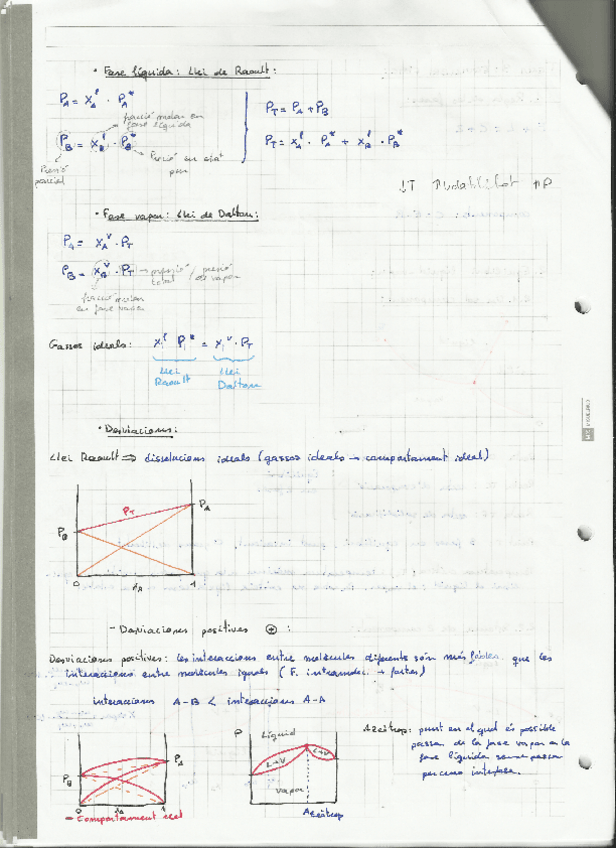 • Fase líquida: Llei de Raoult:
P_A = X_A^l · P_A^*
fracció molar en
fase líquida
P_B = X_B^l · P_B^*
Pressió
parcial
Pressió en estat
pur
P_T = P_A + P_B
P_T = X_A^l · P_A^* + X_B^l · P_B^*
↓T ↑Volatilitat ↑P
• Fase vapor: Llei de Dalton:
P_A = X_A^v · P_T
P_B = X_B^v · P_T → pressió / pressió
total de vapor
fracció molar
en fase vapor
Gasses ideals: X_i^l P_i^* = X_i^v · P_T
Llei Llei
Raoult Dalton
• Desviacions:
Llei Raoult ⇒ dissolucions ideals (gasses ideals → comportament ideal)
P_T
P_B
P_A
0 X_A 1
- Desviaciones positives ⊕ :
Desviaciones positives: les interaccions entre molècules diferents són más febles que les
interaccions entre molècules iguals (F. intramolec. + fortes)
interaccions A-B < interaccions A-A
P_B
P_A
0 X_A 1
- Comportament real
P
Líquid
L+V
L+V
vapor
Azeòtrop
Azeòtrop: punt en el qual és possible
passar de la fase vapor a la
fase líquida sense passar
per cap interfase.